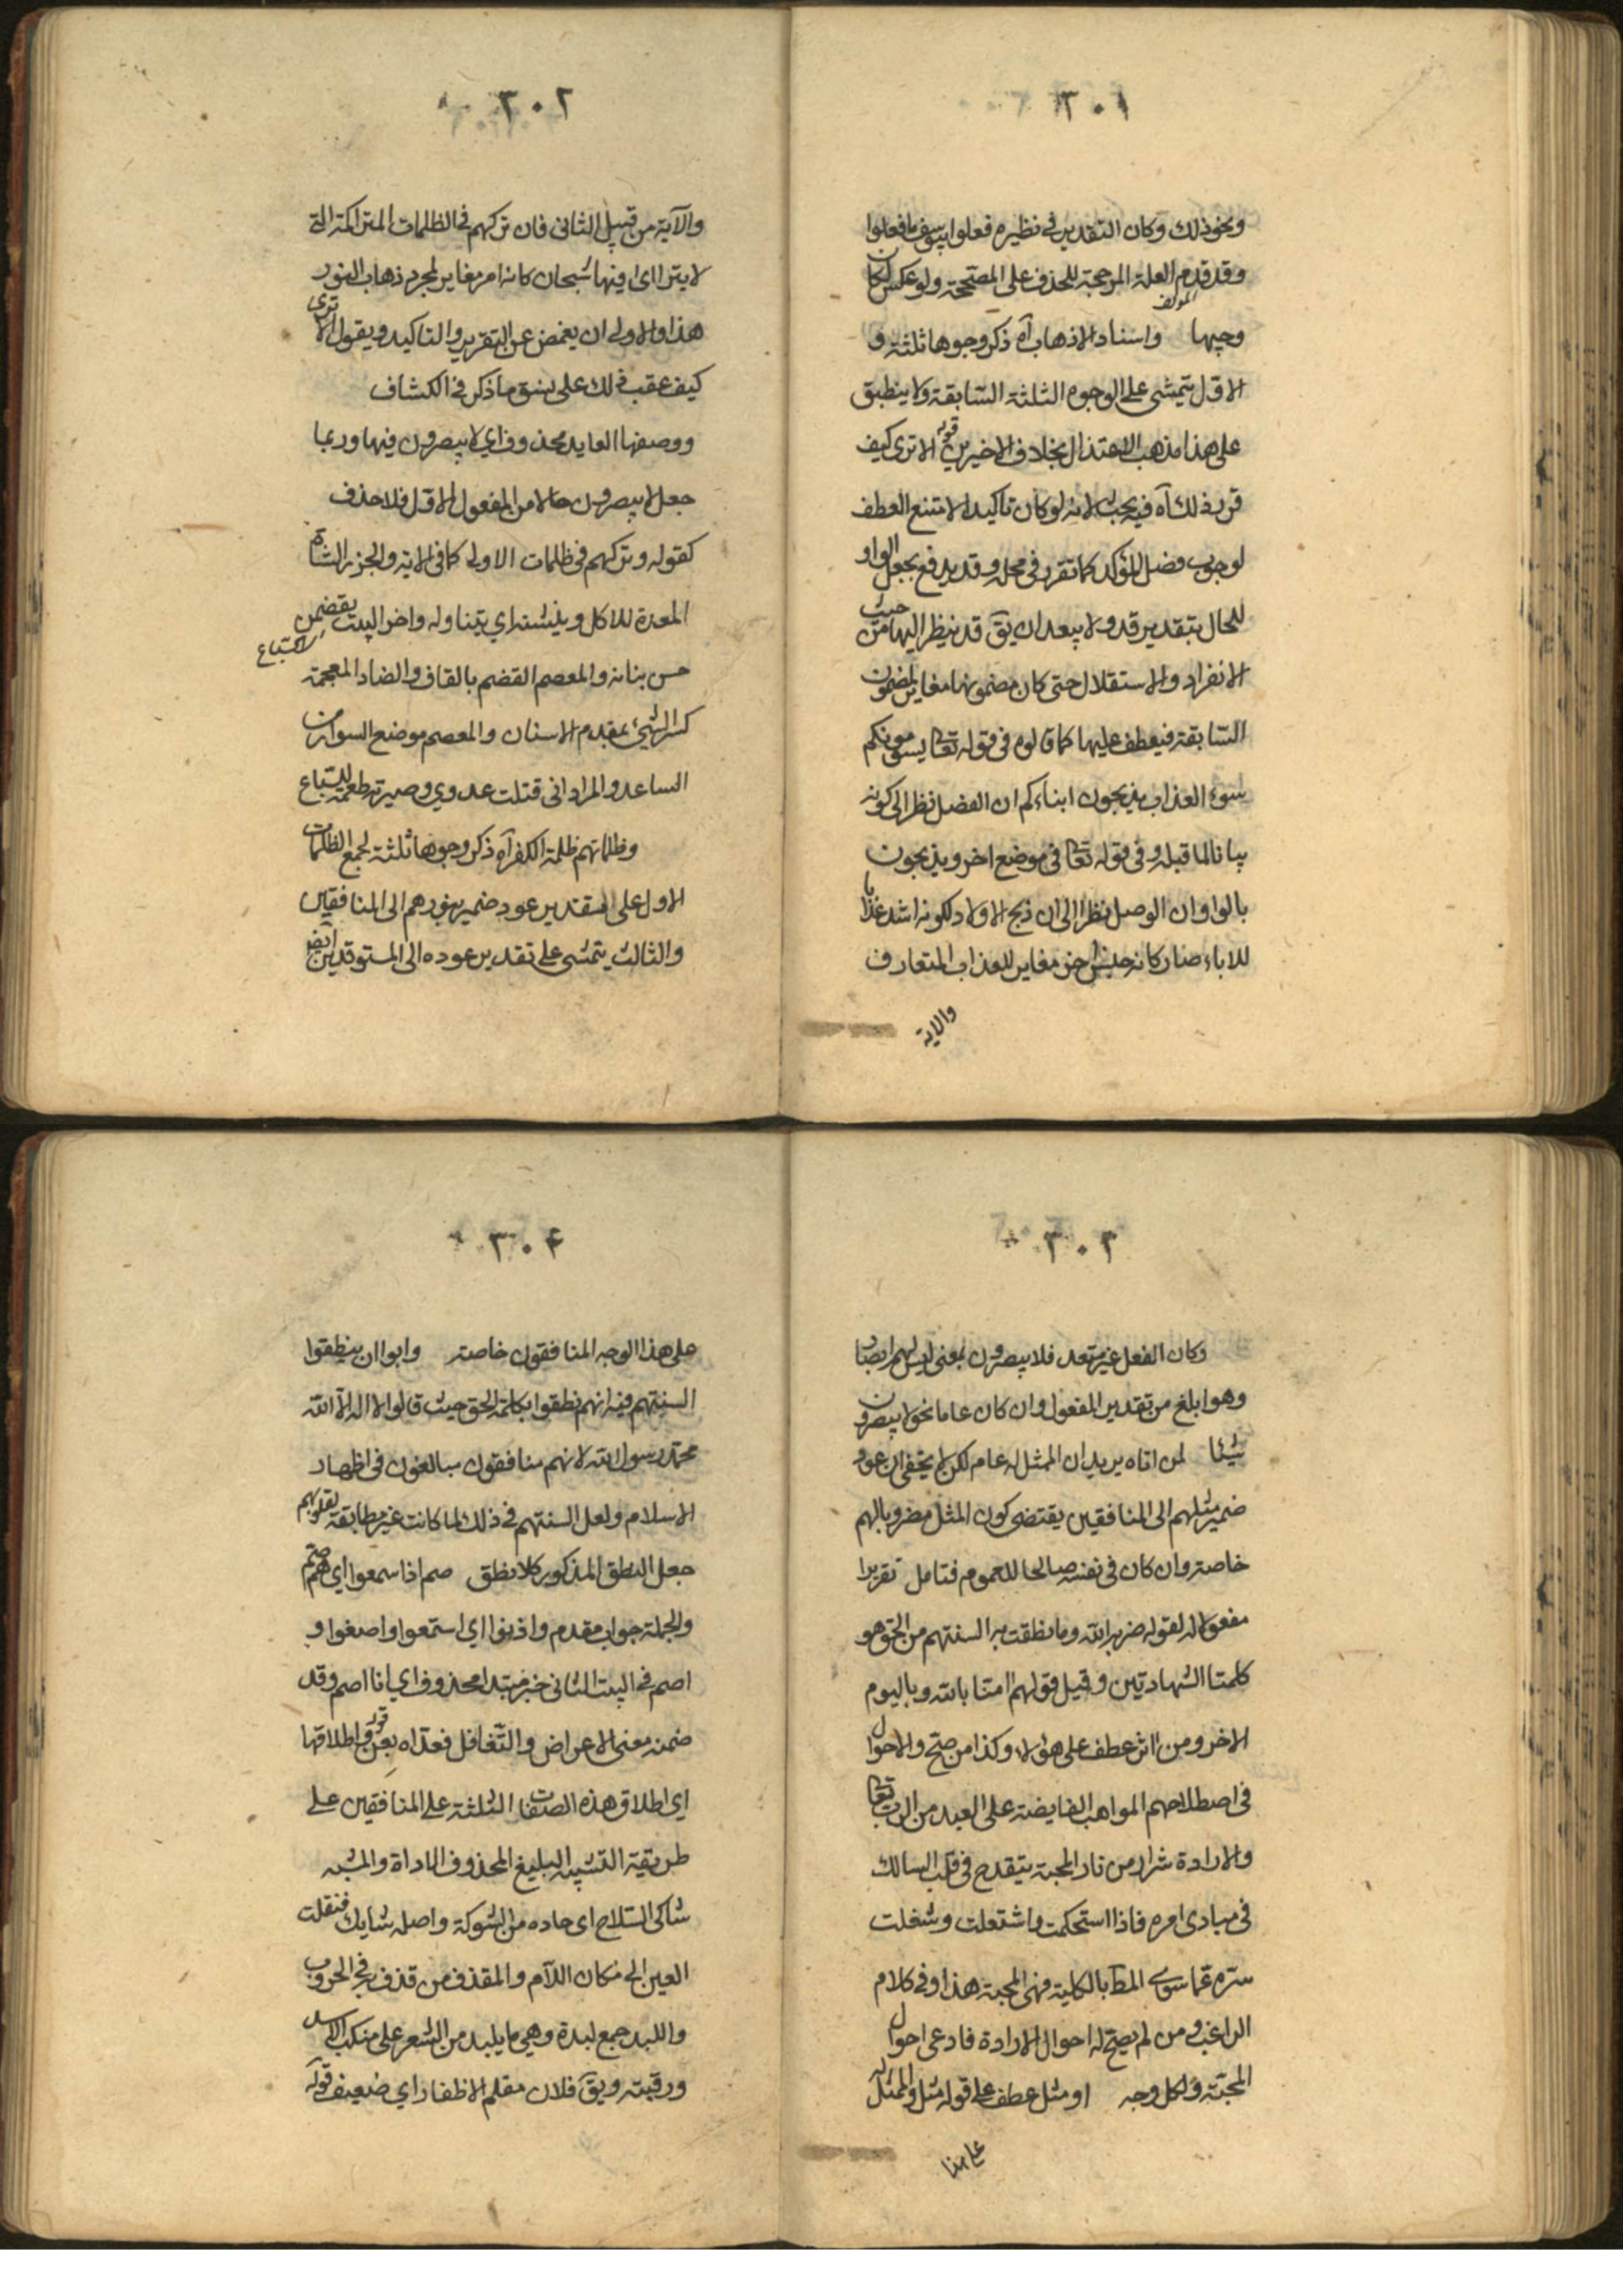 ٣٠١
ونحو ذلك وكان التقدير في نظيره فعلوا بيوسف ما فعلوا
وقد قدم العلة المرجحة للحذف على المصححة ولو عكس لكان
وجيها واسناد الاذهاب آه ذكر وجوها ثلثة و
الاول يتمشى على الوجوه الثلثة السابقة ولا ينطبق
على هذا مذهب الاعتزال بخلاف الاخيرين قوله الا ترى كيف
قرر ذلك آه فيه بحث لانه لو كان تاكيدا لامتنع العطف
لوجوب فصل المؤكد كما تقرر في محله وقد يدفع بجعل الواو
للحال بتقدير قد ولا يبعد ان يق قد ينظر اليها من حيث
الانفراد والاستقلال حتى كان مضمونها مغاير لمضمون
السابقة فيعطف عليها كما قالوه في قوله تعا يسومونكم
سوء العذاب يذبحون ابناءكم ان الفصل نظر الى كونه
بيانا لما قبله وفي قوله تعا في موضع اخر ويذبحون
بالواو ان الوصل نظرا الى ان ذبح الاولاد لكونه اشد عذابا
للاباء صار كانه جنس اخر مغاير للعذاب المتعارف
والاية
٣٠٢
والآية من قبيل الثاني فان تركهم في الظلمات المتراكمة التي
لا يتراأى فيها شبحان كانه امر مغاير لمجرد ذهاب النور
هذا والاولى ان يغمض عن التقرير والتاكيد ويقول الا ترى
كيف عقب ذلك على نسق ما ذكر في الكشاف
ووصفها العايد محذوف اي لا يبصرون فيها وربما
جعل لا يبصرون حالا من المفعول الاول فلا حذف
كقوله وتركهم في ظلمات الاولى كما في الاية والجزر الشاة
المعدة للاكل وينشنه اي يتناوله واخر البيت يقضمن
حسن بنانه والمعصم القضم بالقاف والضاد المعجمة
كسر الشيء بمقدم الاسنان والمعصم موضع السوار من
الساعد والمراد اني قتلت عدوي وصيرته طعمة للسباع
وظلماتهم ظلمة الكفر آه ذكر وجوها ثلثة لجمع الظلمات
الاول على تقدير عود ضمير بنورهم الى المنافقين
والثالث يتمشى على تقدير عوده الى المستوقدين ايضا
٣٠٣
وكان الفعل غير متعد فلا يبصرون بمعنى ليس لهم ابصار
وهو ابلغ من تقدير المفعول وان كان عاما نحو لا يبصرون
شيئا لمن اتاه يريد ان الممثل له عام لكن لا يخفى ان عود
ضمير مثلهم الى المنافقين يقتضي كون المثل مضروبا لهم
خاصة وان كان في نفسه صالحا للعموم فتامل تقريرا
مفعول له لقوله ضربه الله وما نطقت به السنتهم من الحق هو
كلمتا الشهادتين وقيل قولهم امنا بالله وباليوم
الاخر ومن اثر عطف على هؤلاء وكذا من صح والاحوال
في اصطلاحهم المواهب الفايضة على العبد من الرب تعا
والارادة شرار من نار المحبة يتقدح في قلب السالك
في مبادي امره فاذا استحكمت واشتعلت وشغلت
سره عما سوى المط بالكلية فهي المحبة هذا وفي كلام
الراغب ومن لم يصح له احوال الارادة فادعى احوال
المحبة ولكل وجه او مثل عطف على قوله مثل والممثل له
على هذا
٣٠٤
على هذا الوجه المنافقون خاصة وابوا ان ينطقوا
السنتهم فيه انهم نطقوا بكلمة الحق حيث قالوا لا اله الا الله
محمد رسول الله لانهم منافقون مبالغون في اظهار
الاسلام ولعل السنتهم في ذلك لما كانت غير مطابقة لقلوبهم
جعل النطق المذكور كلا نطق صم اذا سمعوا اي هم صم
والجملة جواب مقدم واذنوا اي استمعوا واصغوا و
اصم في البيت الثاني خبر مبتدا محذوف اي انا اصم وقد
ضمنه معنى الاعراض والتغافل فعداه بعن قوله واطلاقها
اي اطلاق هذه الصفات الثلثة على المنافقين على
طريقة التشبيه البليغ المحذوف الاداة والمشبه
شاكي السلاح اي حاده من الشوكة واصله شايك فنقلت
العين الى مكان اللام والمقذف من قذف به في الحروب
واللبد جمع لبدة وهي ما يلبد من الشعر على منكب الاسد
ورقبته ويق فلان مقلم الاظفار اي ضعيف قوله